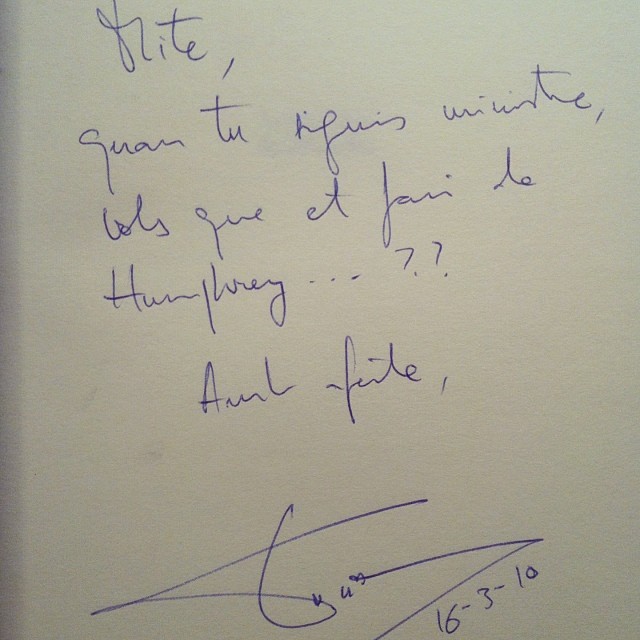 Mite,
quan tu siguis ministre,
vols que et faci de
Humphrey ... ??
Amb afecte,
16-3-10